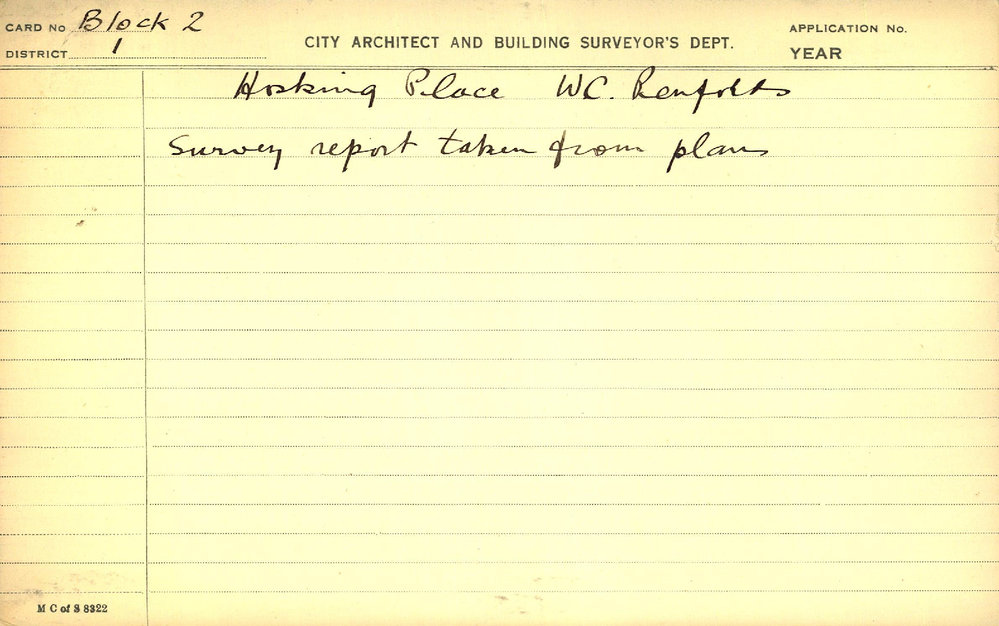 CARD No Block 2
DISTRICT 1
CITY ARCHITECT AND BUILDING SURVEYOR'S DEPT.
APPLICATION No.
YEAR
Hosking Place WC.
Survey report taken from plans
M C of S 8322